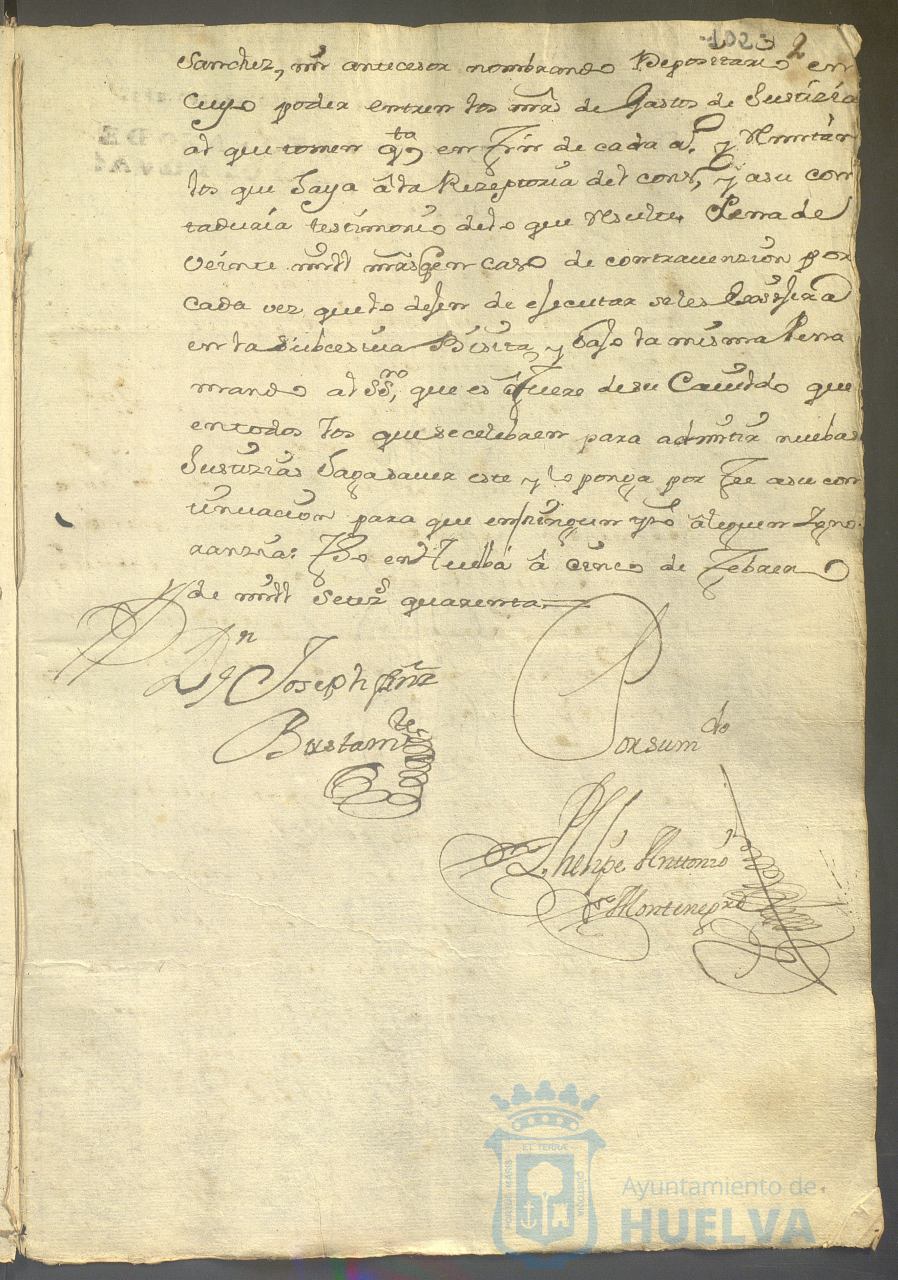 1023 2
Sanchez, mi antecesor nombrando Depositario en
cuyo poder entren los mrs de Gastos de Justizia
al que tomen qta en fin de cada a. y Remitan
los que haya â la Rezeptoria del cons, y a su con
taduria testimonio de lo que Resulte, Pena de
veinte mill mrs q en caso de contravenzion por
cada vez que lo dejen de ejecutar se les
en la subcesiva Bisita, y bajo la misma Pena
mando al ssno, que es ô fuere de su Cavildo que
en todos los que se celebraren para admitir nuebas
Justizias haga saver este y lo ponga por fee a su con
tinuacion para que en ningun tpo âleguen Igno
ranzia: fho en Huelba â cinco de febrero
de mill setezs quarenta
Dn Joseph
Bustamte
Por su mdo
Phelipe Anttonio
Montenegro
Ayuntamiento de
HUELVA
PORTUS MARIS
ET TERRÆ
CUSTODIA